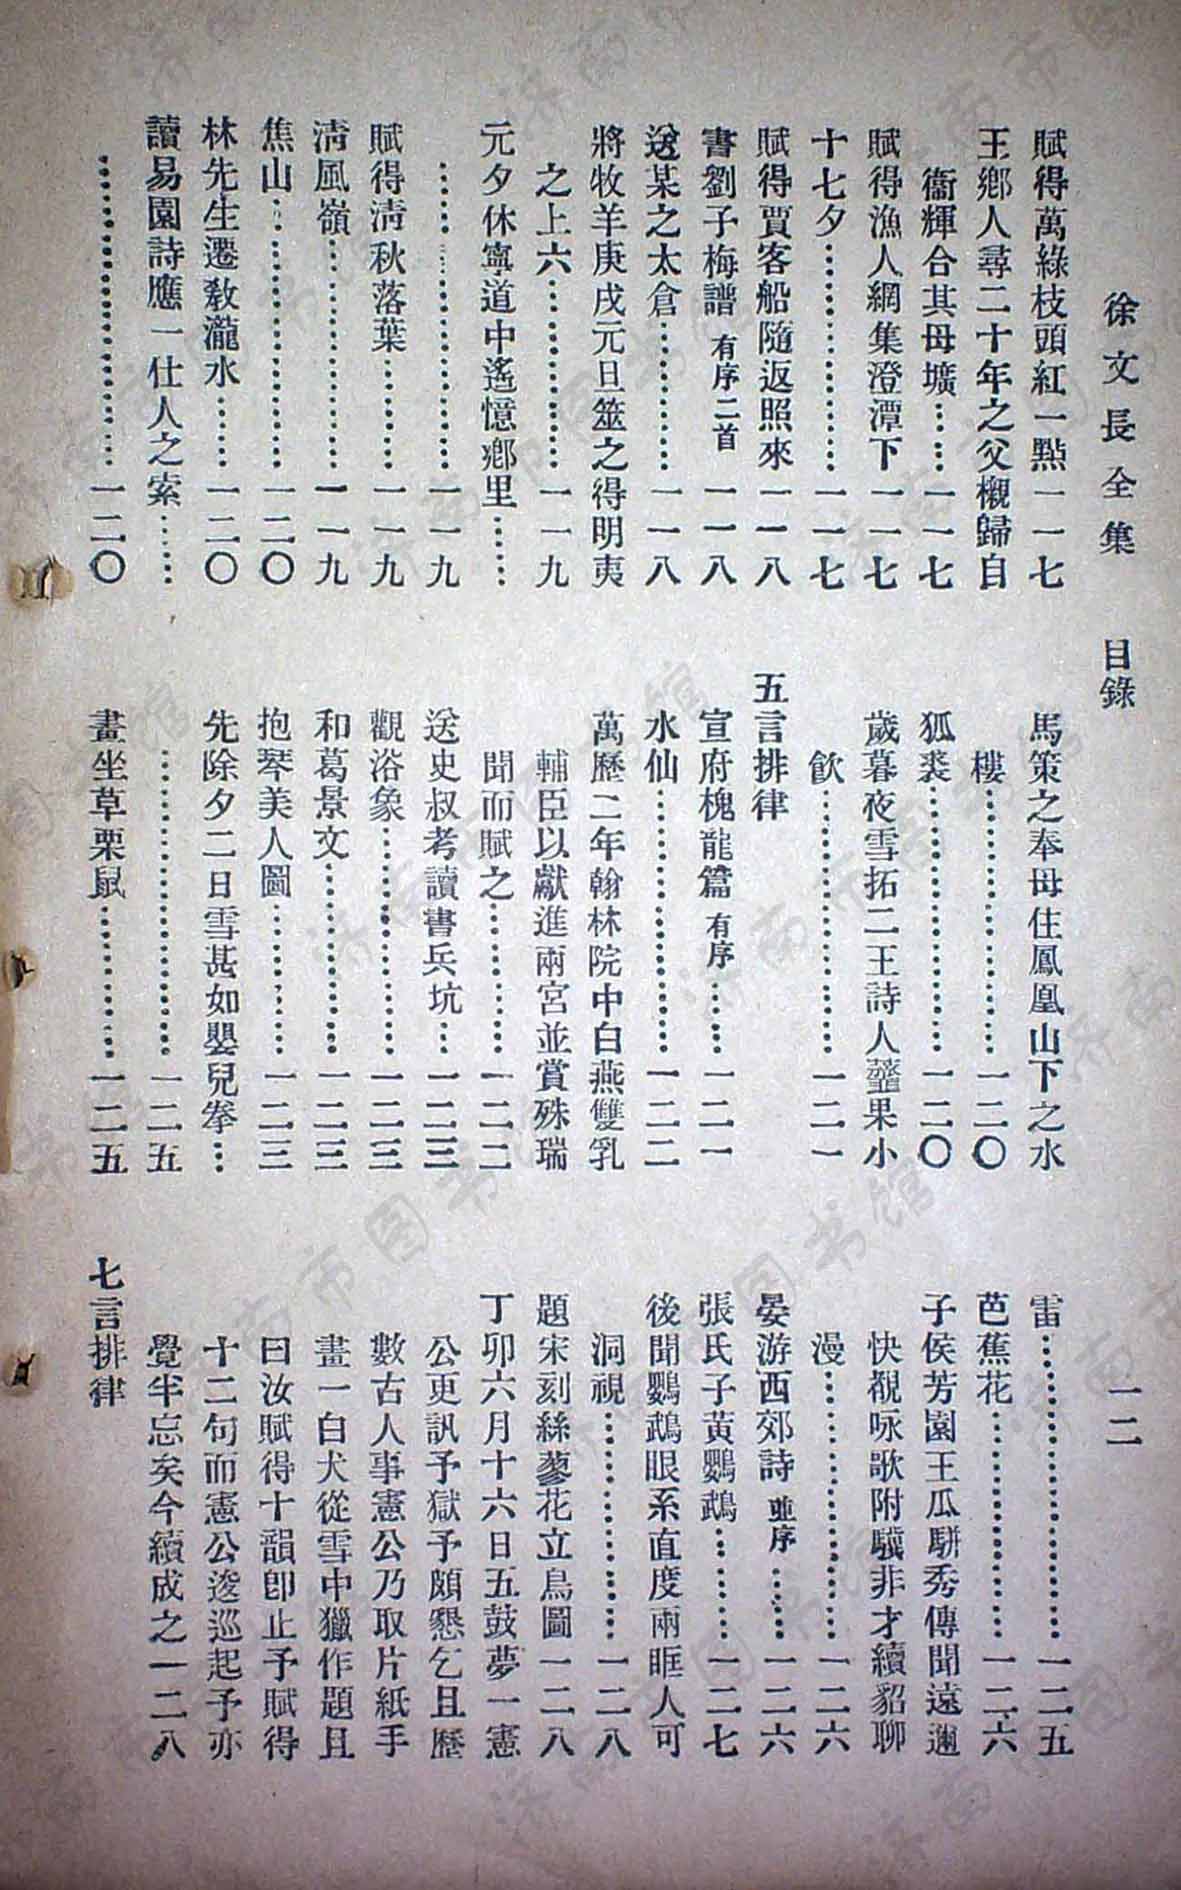 徐文長全集　目錄　一二
賦得萬綠枝頭紅一點一一七
王鄉人尋二十年之父櫬歸自
衞輝合其母壙……一一七
賦得漁人網集澄潭下一一七
十七夕……………一一七
賦得賈客船隨返照來一一八
書劉子梅譜 有序二首 一一八
送某之太倉…………一一八
將牧羊庚戌元旦筮之得明夷
之上六……………一一九
元夕休寧道中遙憶鄉里……
……………………一一九
賦得淸秋落葉………一一九
淸風嶺………………一一九
焦山…………………一二〇
林先生遷敎瀧水……一二〇
讀易園詩應一仕人之索……
……………………一二〇
馬策之奉母住鳳凰山下之水
樓…………………一二〇
狐裘…………………一二〇
歲暮夜雪拓二王詩人虀果小
飮…………………一二一
五言排律
宣府槐龍篇 有序……一二一
水仙…………………一二二
萬歷二年翰林院中白燕雙乳
輔臣以獻進兩宮並賞殊瑞
聞而賦之…………一二二
送史叔考讀書兵坑…一二三
觀浴象………………一二三
和葛景文……………一二三
抱琴美人圖…………一二三
先除夕二日雪甚如嬰兒拳…
……………………一二五
畫坐草栗鼠…………一二五
雷……………………一二五
芭蕉花………………一二六
子侯芳園王瓜駢秀傳聞遠邇
快覩咏歌附驥非才續貂聊
漫…………………一二六
晏游西郊詩 並序……一二六
張氏子黃鸚鵡………一二七
後聞鸚鵡眼系直度兩眶人可
洞視………………一二八
題宋刻絲蓼花立鳥圖一二八
丁卯六月十六日五鼓夢一憲
公更訊予獄予頗懇乞且歷
數古人事憲公乃取片紙手
畫一白犬從雪中獵作題且
曰汝賦得十韻卽止予賦得
十二句而憲公逡巡起予亦
覺半忘矣今續成之一二八
七言排律